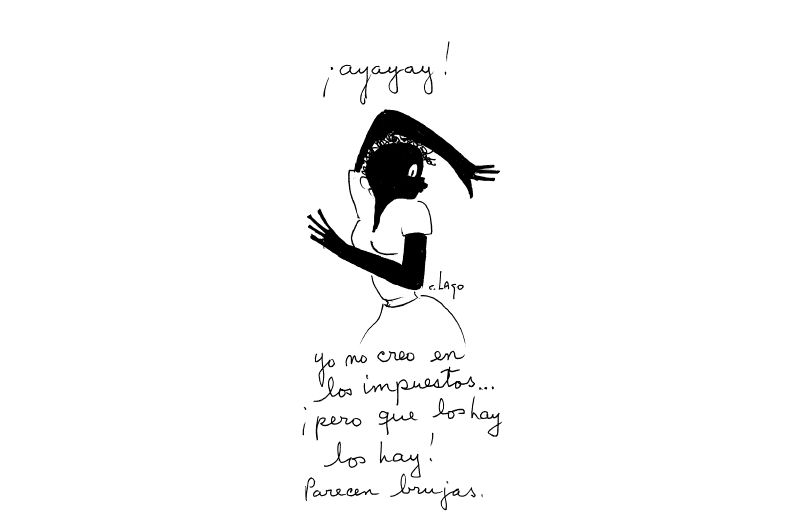 ¡ayayay!
c. LAgo
yo no creo en
los impuestos...
¡pero que los hay
los hay!
Parecen brujas.